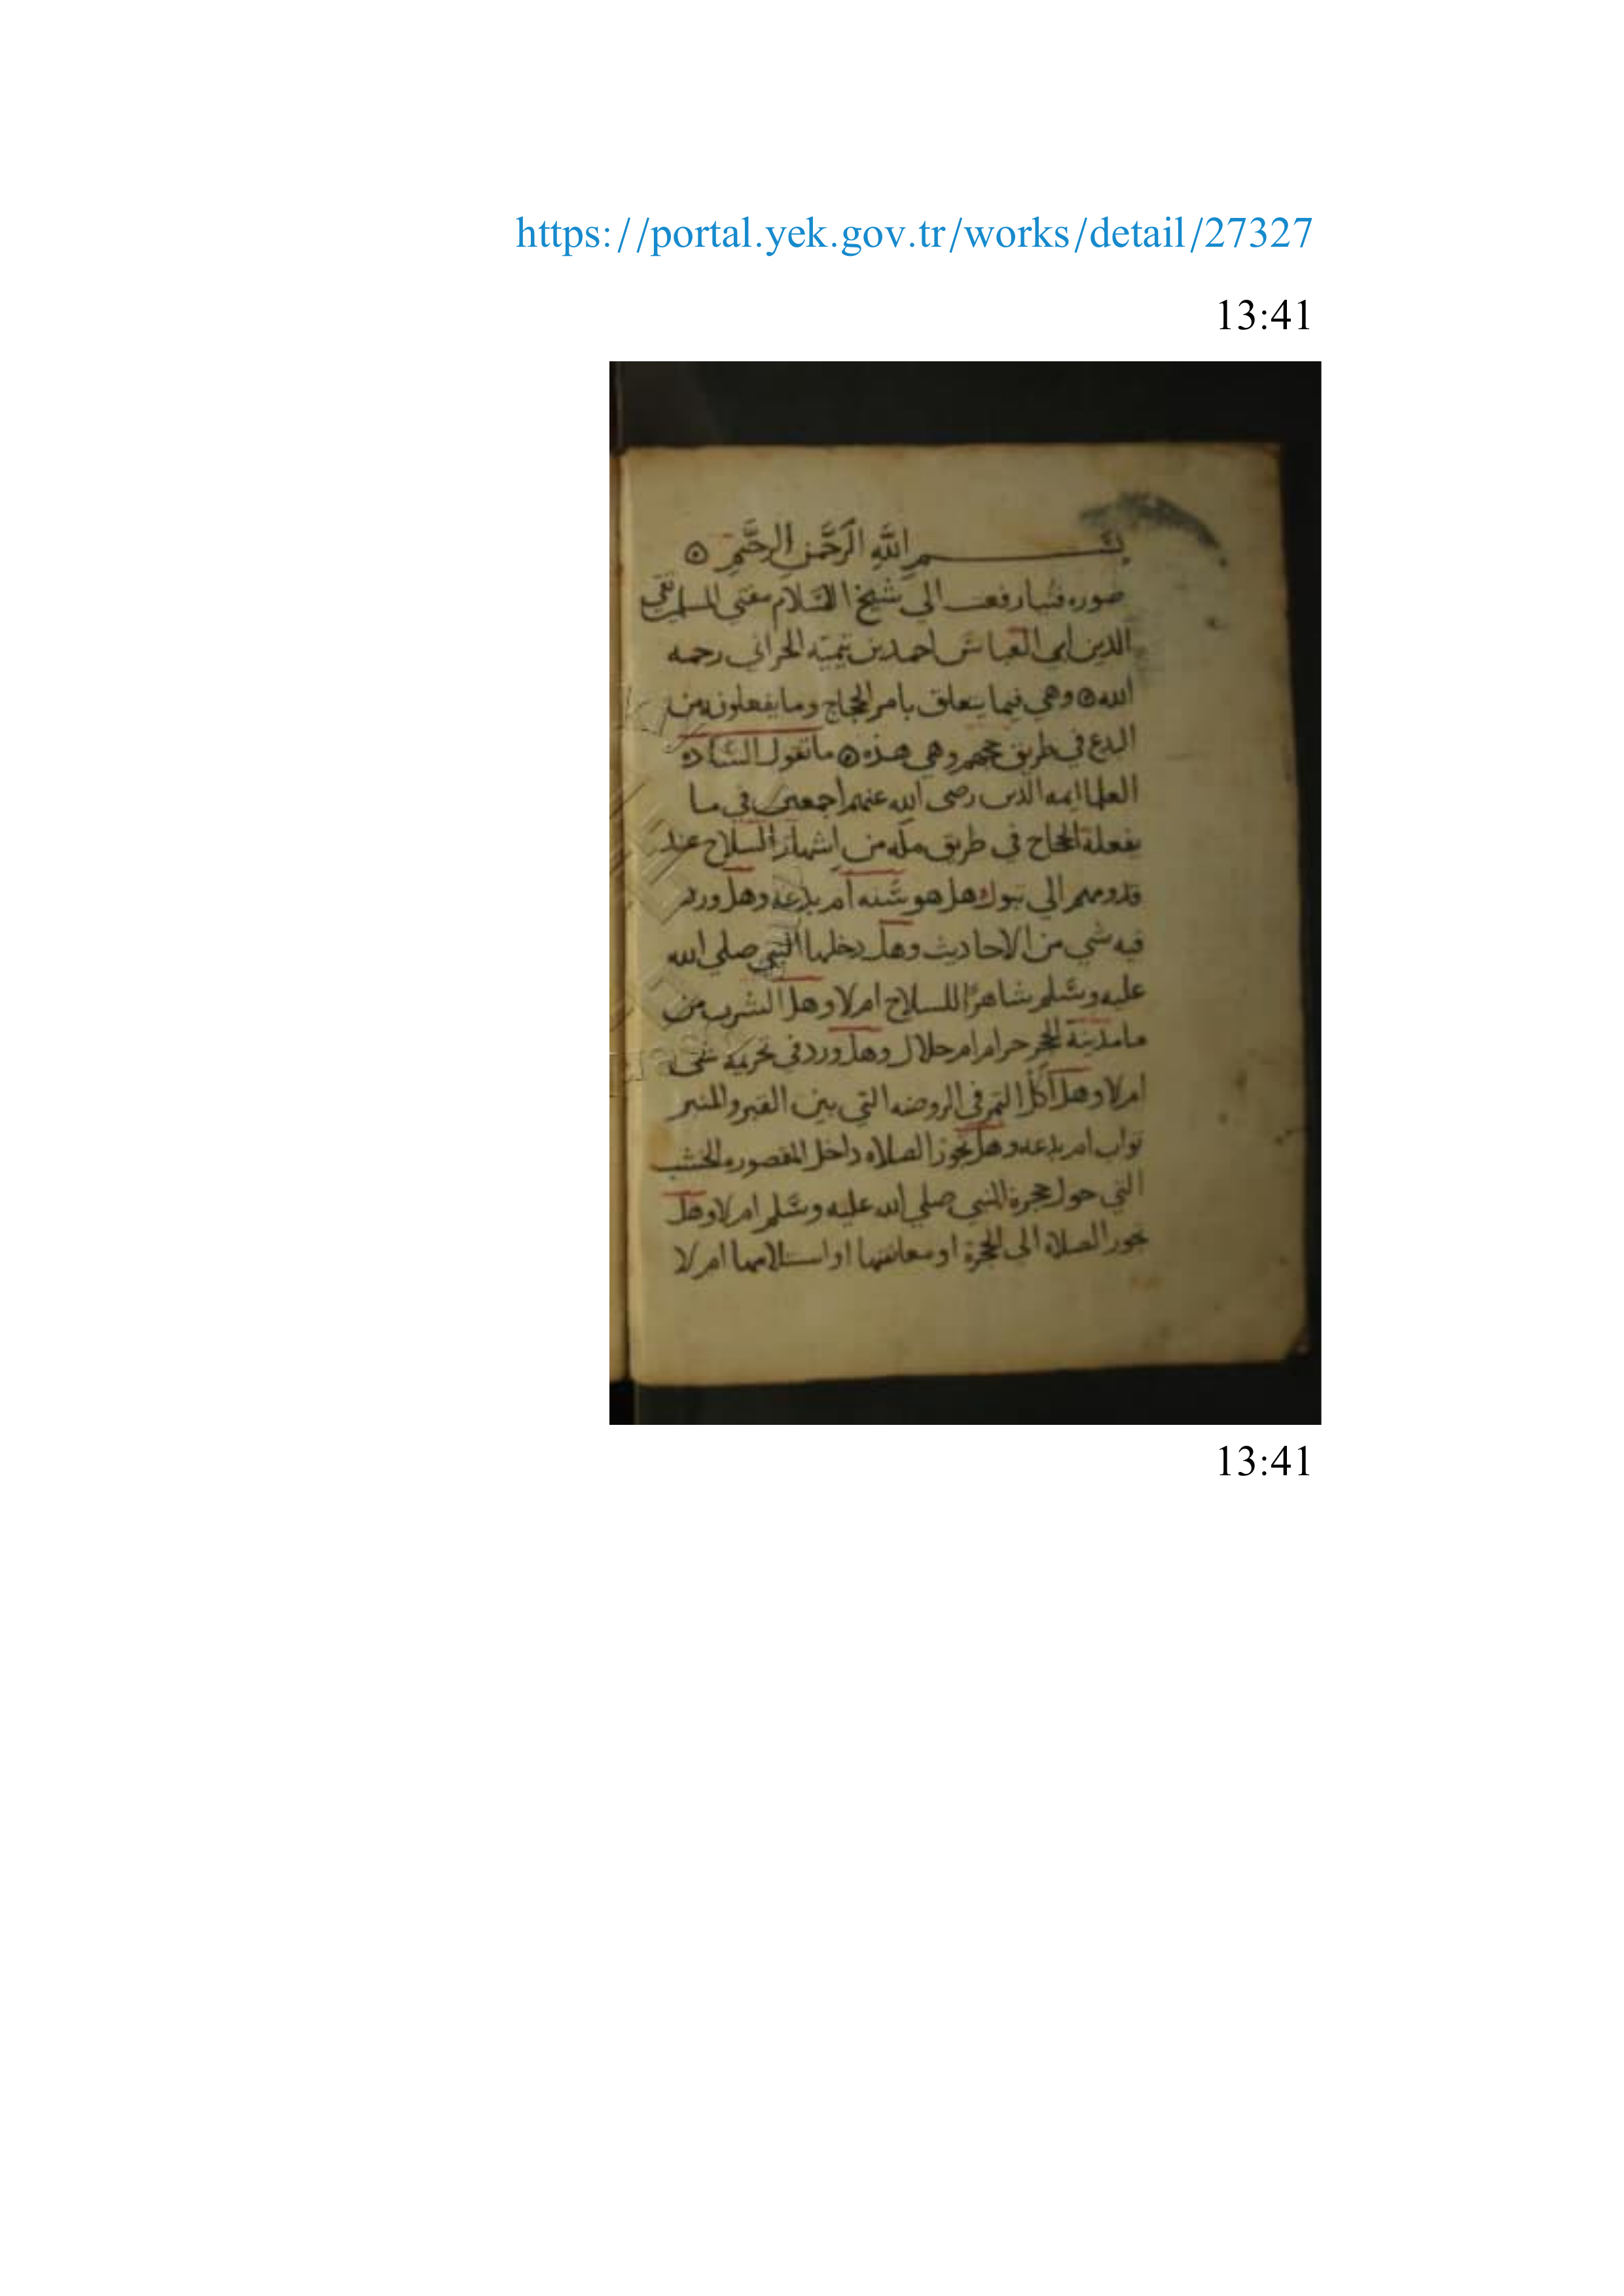 https://portal.yek.gov.tr/works/detail/27327
13:41
بسم اللَّهِ الرَّحْمَنِ الرَّحِيمِ ۞
صوره فتيا رفعت الي شيخ الاسلام مفتي المسلمين تقي
الدين ابي العباس احمد بن تيميه الحراني رحمه
الله ۞ وهي فيما يتعلق بامر الحجاج وما يفعلونه من
البدع في طريق حجهم وهي هذه ۞ ما تقول الساده
العلما ايمه الدين رضي الله عنهم اجمعين في ما
يفعله الحجاج في طريق مكه من اشهار السلاح عند
قدومهم الي تبوك هل هو سنه ام بدعه وهل ورد
فيه شي من الاحاديث وهل دخلها النبي صلي الله
عليه وسلم شاهرًا للسلاح ام لا وهل الشرب من
ما مدينة الحجر حرام ام حلال وهل ورد في تحريمه شي
ام لا وهل اكل التمر في الروضه التي بين القبر والمنبر
ثواب ام بدعه وهل تجوز الصلاه داخل المقصوره الخشب
التي حول حجرة النبي صلي الله عليه وسلم ام لا وهل
تجوز الصلاة الي الحجرة او معانقتها او استلامها ام لا
13:41